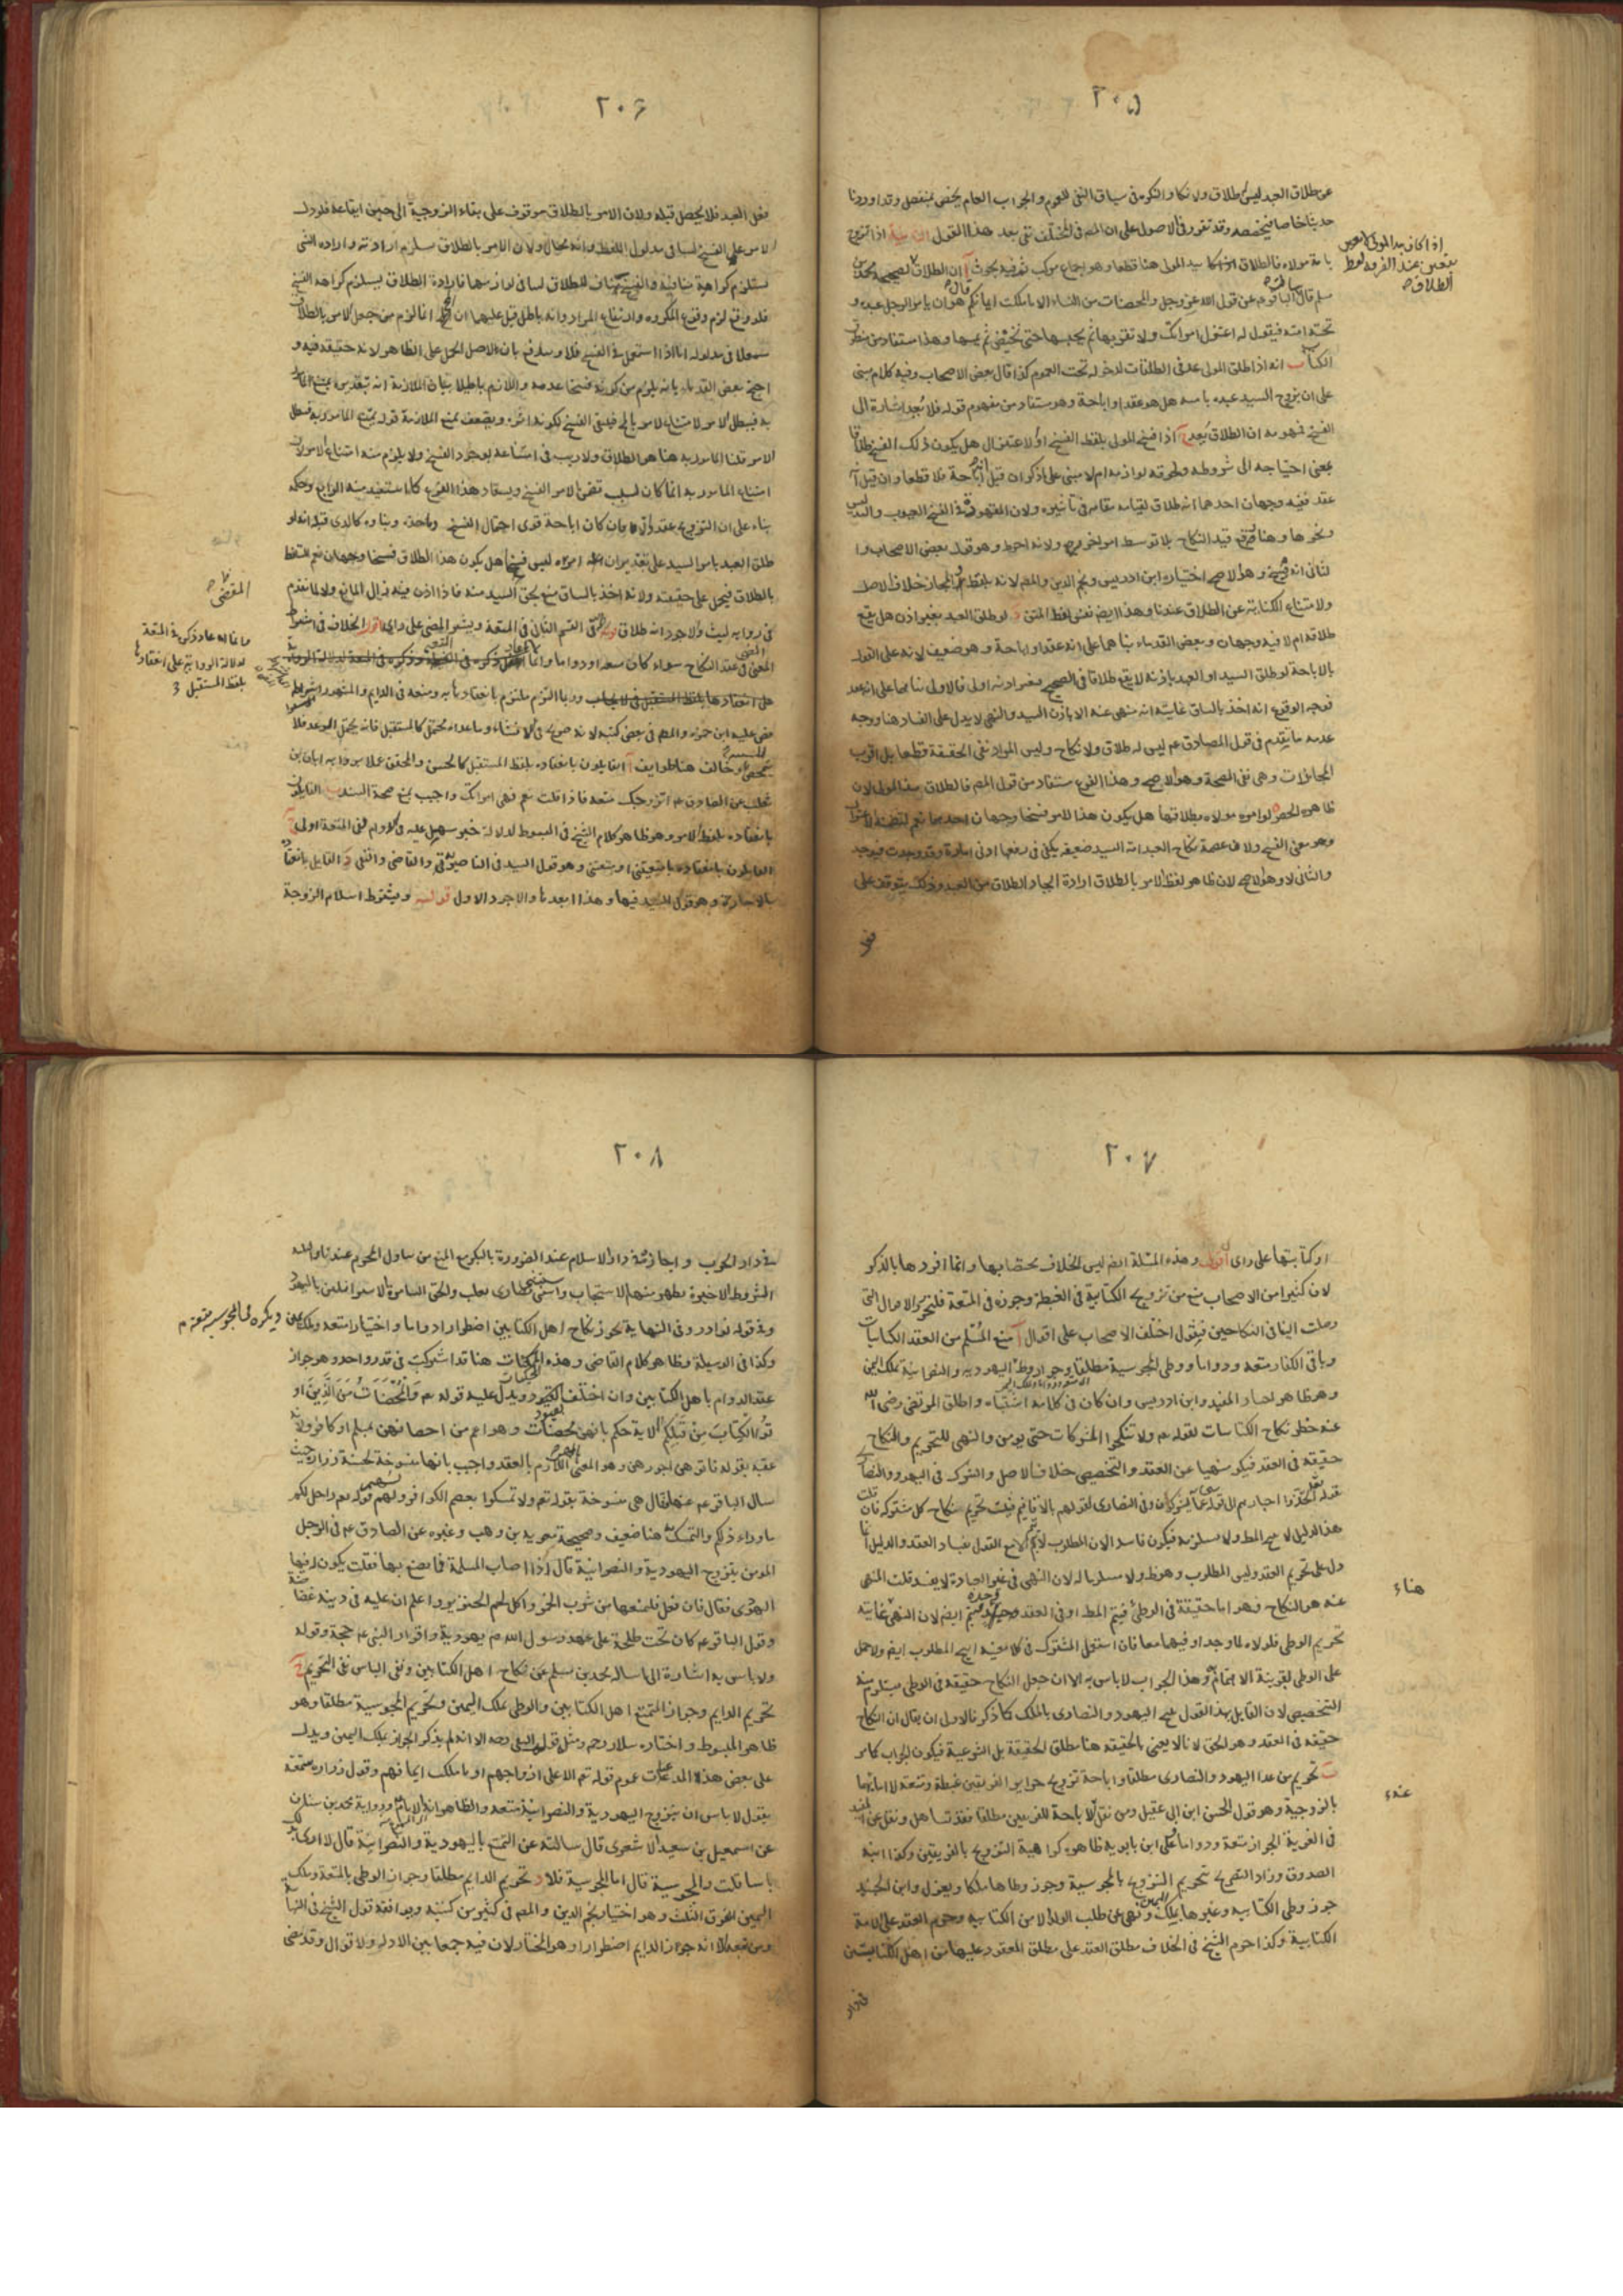 ٢٠٥
عن طلاق العبد ليس طلاق ولا نكاح والنكره في سياق النفي للعموم والجواب العام يخص بمنفصل وقد اوردنا
حديثا خاصا فيخصصه وقد تقرر في الاصول على ان المصـ في المختلف نفى بعد هذا القول اذا تزوج
بامة مولاه فالطلاق بيد المولى هنا قطعا وهو اجماع مركب نفيه بحوث آ ان الطلاق لصحيحة محمد بن
مسلم قال سالت الباقر عم عن قول الله عز وجل والمحصنات من النساء الا ما ملكت ايمانكم قال هو ان يامر الرجل عبده و
تحته امته فيقول له اعتزل امراتك ولا تقربها ثم يحبسها حتى تحيض ثم يمسها وهذا مستفاد من
الكتاب انه اذا طلق المولى عد في الطلقات لدخوله تحت العموم كذا قال بعض الاصحاب وفيه كلام مبنى
على ان تزويج السيد عبده بامته هل هو عقد او اباحة وهو مستفاد من مفهوم قوله فلا بعد اشارة الى
الفسخ فمهومه ان الطلاق يعد اذا فسخ المولى بلفظ الفسخ او الاعتزال هل يكون ذلك الفسخ طلاقا
بمعنى احتياجه الى شروطه ولحوقه لوازمه ام لا مبنى على ما ذكر ان قيل اباحة فلا قطعا وان قيل انه
عقد ففيه وجهان احدهما انه طلاق لقيامه مقامه في تاثيره ولان المفهوم في الفسخ العيوب والتدليس
ونحوها وهنا رفع قيد النكاح بلا توسط امر اخر ولانه احوط وهو قول بعض الاصحاب وا
لثانى انه فسخ وهو الاصح اختياره ابن ادريس ونجم الدين والمصـ لانه بلفظ المجاز خلاف الاصل
ولامتناع الكناية عن الطلاق عندنا وهذا ايضا نفى لفظ المتن لو طلق العبد بغير اذن هل يقع
طلاقه ام لا فيه وجهان وبعض القدماء بناهما على انه عقد او اباحة وهو ضعيف لانه على القول
بالاباحة لو طلق السيد او العبد باذنه لا يقع طلاقا في الصحيح
فوجه الوقوع انه اخذ بالساق غايته انه منهى عنه الا باذن السيد والنهى لا يدل على الفساد هنا ووجه
عدمه ما تقدم في قول الصادق عم ليس له طلاق ولا نكاح وليس المراد نفى الحقيقة قطعا بل اقرب
المجازات وهى نفى الصحة وهو الاصح وهذا الفرع مستفاد من قول المصـ فالطلاق بيد المولى لان
ظاهره الحصر لو امره مولاه بطلاقها هل يكون هذا الامر فسخا وجهان احدهما نعم
وهو معنى الفسخ ولان عصمة نكاح العبد امة السيد ضعيفه يكفى في رفعها ادنى امارة وقد وجدت فيوجد
والثانى لا وهو الاصح لان ظاهر لفظ الامر بالطلاق ارادة ايجاد الطلاق من العبد وذلك يتوقف على
فعل
اذا كان بيد المولى
عند الفرقة لفظ
الطلاق
٢٠۶
فعل العبد فلا يحصل قبله ولان الامر بالطلاق موقوف على بقاء الزوجية الى حين ايقاعه فلو دل
الامر على الفسخ لتنافى مدلول اللفظ وانه محال ولان الامر بالطلاق يستلزم ارادته وارادة الشى
تستلزم كراهية منافيه والفسخ مناف للطلاق لتنافى لوازمهما فارادة الطلاق يستلزم كراهة الفسخ
فلو وقع لزم وقوع المكروه وارتفاع المراد وانه باطل قيل عليهما ان انما لزم من جعل الامر بالطلاق
مستعملا في مدلوله اما اذا استعمل في الفسخ فلا وسلم بان الاصل الحمل على الظاهر لانه حقيقة فيه و
احتج بعض القدماء بانه يلزم من كونه فسخا عدمه واللازم باطل بيان الملازمة انه بتقديره يمتنع المامور
به فيبطل الامر لامتناع الامر بالمح فيبقى الفسخ لكونه اثره ويضعف بمنع الملازمة قوله يمتنع المامور به فيبطل
الامر قلنا المامور به هنا هو الطلاق ولا ريب في امتناعه لوجود الفسخ ولا يلزم منه امتناع الامر لان
امتناع المامور به انما كان لسبب تضمن الامر الفسخ ويستفاد هذا الفرع كما استفيد منه الرابع وحكم
بناء على ان التزويج عقد وان كان اباحة قوى احتمال الفسخ وبناؤه كالذى قبله انه لو
طلق العبد بامر السيد على تقدير ان امره ليس فسخا هل يكون هذا الطلاق فسخا وجهان نعم
بالطلاق فيحمل على حقيقته ولانه اخذ بالساق منع بحق السيد منه فاذا اذن فيه زال المانع ولما تقدم
في رواية ليث والاجود انه طلاق في القسم الثانى في المتعة ويشترط المضى على راى اقول الخلاف في اشتراط
المضى في عقد النكاح سواء كان متعة او دواما وانما ذكره في المتعة لدلالة الرواية
على انعقادها بلفظ المستقبل في الايجاب وربما التزم ملتزم بانعقادها به ومنعه في الدايم والمشهور اشتراط
مضى عليه ابن حمزه والمصـ في بعض كتبه لانه صريح في الانشاء وما عداه محتمل كالمستقبل فانه يحتمل الوعد فلا
وخالف هنا طوايف آ القايلون بانعقاده بلفظ المستقبل كالحسن والمحقق عملا برواية ابان بن
تغلب عن الصادق عم اتزوجك متعة فاذا قلت نعم فهى امراتك واجيب بمنع صحة السند ب القايلون
بانعقاده بلفظ الامر وهو ظاهر كلام الشيخ في المبسوط لدلالة خبر سهل عليه في الدوام ففى المتعة اولى
القايلون بانعقاده وهو قول السيد في الناصريه والقاضى والتقى د القايل بانعقاده
بالاجارة وهو قول السيد فيها وهذا ابعدها والاجود الاول قوله ويشترط اسلام الزوجة
المقتضى
وانما اعاد ذكر المتعة
لدلالة الرواية على انعقادها
بلفظ المستقبل
٢٠٧
او كتابيتها على راى اقول وهذه المسئلة ايضا ليس الخلاف مختصا بها وانما افردها بالذكر
لان كثيرا من الاصحاب منع من تزويج الكتابية في الغبطة وجوزه في المتعة فلنحرر الاقوال التى
وصلت الينا في النكاحين فنقول اختلف الاصحاب على اقوال آ منع المسلم من العقد الكتابيات
وباقى الكفار متعة ودواما ووطى المجوسية مطلقا وجواز وطى اليهوديه والنصرانية بملك اليمين
وهو ظاهر المفيد وابن ادريس وان كان في كلامه اشتباه واطلق المرتضى رضى الله
عنه حظر نكاح الكتابيات لقوله تعم ولا تنكحوا المشركات حتى يومن والنهى للتحريم والنكاح
حقيقة في العقد فيكون نهيا عن العقد والتخصيص خلاف الاصل والشرك في اليهود والنصارى
لقوله تعم اتخذوا احبارهم الى قوله عما يشركون وفي النصارى لقولهم بالاقانيم فيثبت تحريم نكاح كل مشركه فان قلت
هذا الدليل لا ينتج المطلوب ولا مستلزمه فيكون فاسدا لان المطلوب لا يتم الا مع القول بفساد العقد والدليل انما
دل على تحريم العقد وليس المطلوب وهو ظ ولا مستلزما له لان النهى في غير العبادة لا يفسد قلت المنهى
عنه هو النكاح وهو اما حقيقة في الوطى فيتم المط او في العقد وحده فيتم ايضا لان النهى غايته
تحريم الوطى فلولاه لما وجد او فيهما معا فان استعمل المشترك في كلا معنييه انتج المطلوب ايضا ولا حمل
على الوطى لقرينة الاهتمام وهذا الجواب لا باس به الا ان جعل النكاح حقيقة في الوطى يستلزم منه
التخصيص لان القايل بهذا القول يبيح اليهود والنصارى بالملك كما ذكر فالاولى ان يقال ان النكاح
حقيقة في العقد وهو الحق لانا لا نعنى بالحقيقة هنا مطلق الحقيقة بل الشرعية فيكون الجواب كما مر
ب تحريم من عدا اليهود والنصارى مطلقا واباحة تزويج حراير الفريقين غبطة ومتعة لا امائهما
بالزوجية وهو قول الحسن ابن ابى عقيل ومن نقل الاباحة للفريقين مطلقا فقد تساهل ونقل عن المفيد
في الغرية الجواز متعة ودواما على ابن بابويه ظاهره كراهية التزويج بالفريقين وكذا ابنه
الصدوق وزاد التصريح بتحريم التزويج بالمجوسية وجوز وطاها ملكا ويعزل وابن الجنيد
جوز وطى الكتابيه وغيرها بملك اليمين ونهى عن طلب الولد الا من الكتابيه وحرم العقد على الامة
الكتابية وكذا حرم الشيخ في الخلاف مطلق العقد على مطلق المعقود عليها من اهل الكتابيين
في دار
هناء
عنده
٢٠٨
في دار الحرب واجازته في دار الاسلام عند الضرورة بالبكر مع المنع من تناول المحرم عندنا والمسئله
الشروط الاخيرة يظهر منهم الاستحباب واستثنى نصارى بنى تغلب والحق السامرة باليهود
وفي قوله نوادر وفي النهاية يجوز نكاح اهل الكتابين اضطرارا دواما واختيارا متعة وملك يمين
وكذا في الوسيلة وظاهر كلام القاضى وهذه المحكيات هنا قد اشتركت في قدر واحد وهو جواز
عقد الدوام باهل الكتابين وان اختلف القيود ويدل عليه قوله تعم والمحصنات من الذين او
توا الكتاب من قبلكم الاية حكم بانهن محصنات وهو اعم من احصانهن بمسلم او كافر ولانه
عقبه بقوله فاتوهن اجورهن وهو المعنى اللازم بالعقد واجيب بانها منسوخة لحسنة زرارة حيث
سال الباقر عم عنها فقال هى منسوخة بقوله تعم ولا تمسكوا بعصم الكوافر ولهم قوله تعم واحل لكم
ما وراء ذلكم والتمسك هنا ضعيف وصحيحة معويه بن وهب وغيره عن الصادق عم في الرجل
المومن يتزوج اليهودية والنصرانية قال اذا اصاب المسلمة فما يصنع بها فقلت يكون له فيها
الهوى فقال فان فعل فليمنعها من شرب الخمر واكل لحم الخنزير واعلم ان عليه في دينه غضاضة
وقول الباقر عم كان تحت طلحة على عهد رسول الله ص يهودية واقرار النبى عم حجة وقوله
ولا باس به اشارة الى ما ساله محمد بن مسلم عن نكاح اهل الكتابين ونفى الباس نفى التحريم ج
تحريم الدايم وجواز التمتع اهل الكتابين والوطى بملك اليمين وتحريم المجوسية مطلقا وهو
ظاهر المبسوط واختاره سلار رحمه ومثله قول التقى رحمه الا انه لم يذكر الجواز بملك اليمين ويدل
على بعض هذه المدعيات عموم قوله تعم الا على ازواجهم او ما ملكت ايمانهم وقول زراره سمعته
يقول لا باس ان يتزوج اليهودية والنصرانية متعة والظاهر انه الامام ورواية محمد بن سنان
عن اسمعيل بن سعيد الاشعرى قال سالته عن التمتع باليهودية والنصرانية قال لا ارى بذلك
باسا قلت والمجوسية قال اما المجوسية فلا د تحريم الدايم مطلقا وجواز الوطى بالمتعة وملك
اليمين للفرق الثلث وهو اختيار نجم الدين والمصـ في كثير من كتبه ويوافقه قول الشيخ في النهاية
ومن تبعه الا انه جوز الدايم اضطرارا وهو المختار لان فيه جمعا بين الادله والاقوال وقد مضى
ويكره المجوسية متعة